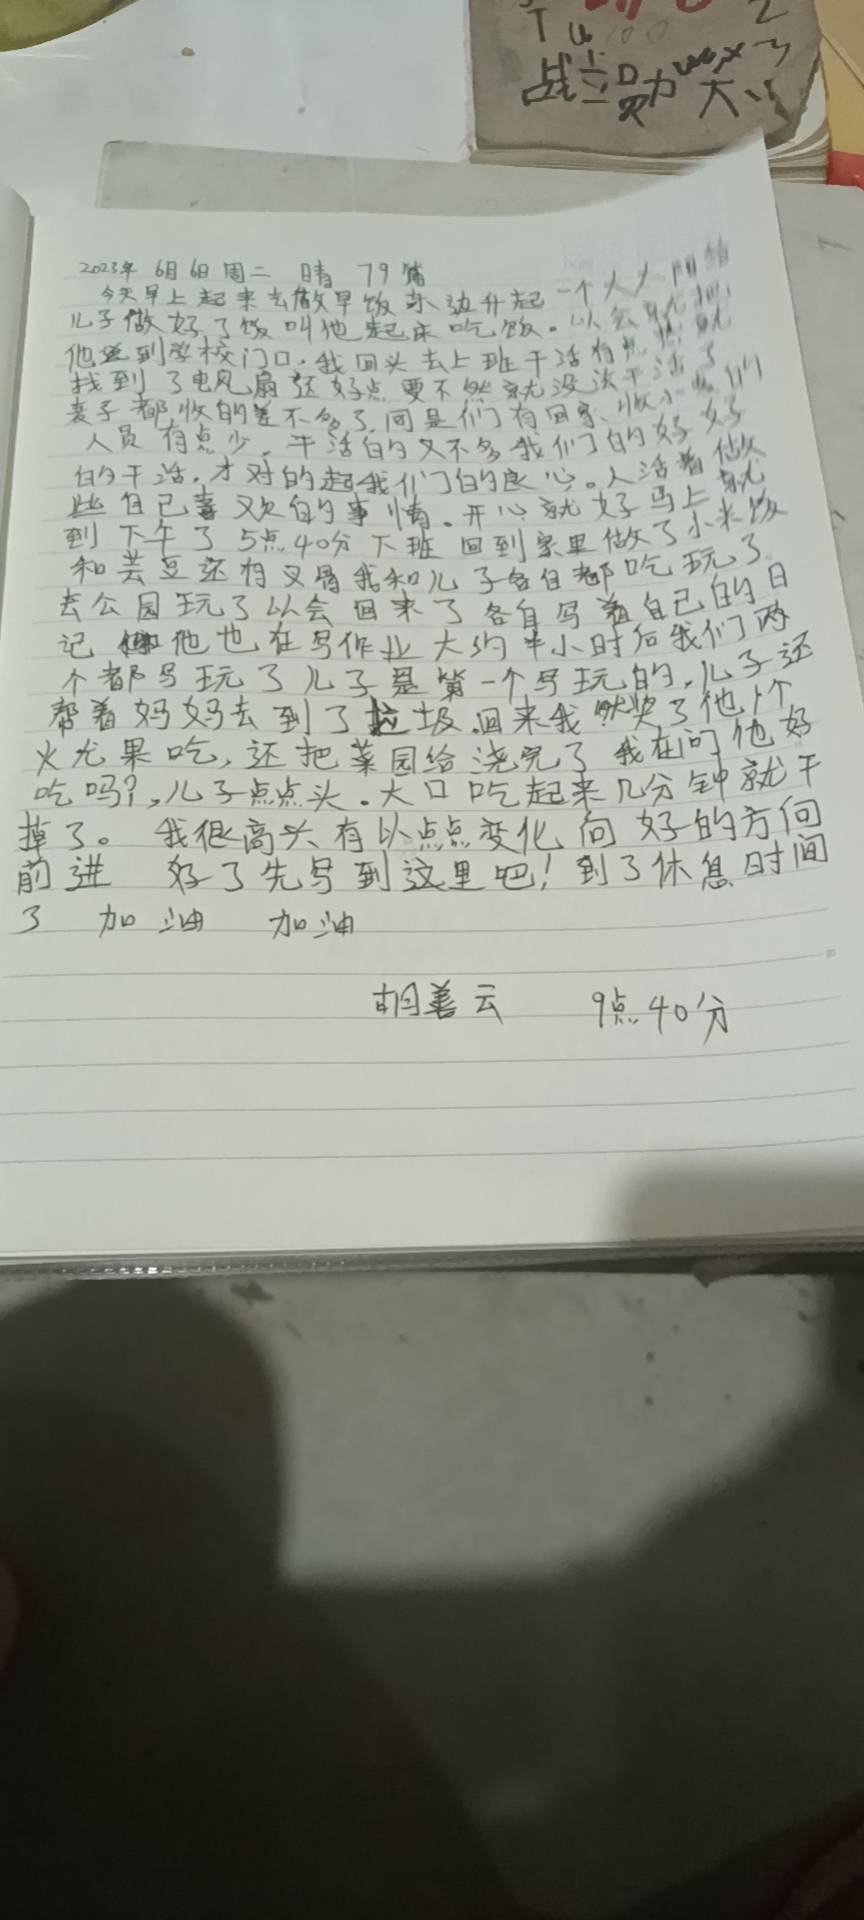 Tu100 2
战立员力 大 3
2023年 6月6日 周二 晴 79篇
今天早上起来去做早饭东边升起一个大火
儿子做好了饭叫他起床吃饭。以会就把
他送到学校门口,我回头去上班干活有点 就
找到了电风扇还好点要不然就没法干活了
麦子都收的差不多了,同是们有回家、收小麦们
人员有点少,干活的又不多我们的好好
的干活,才对的起我们的良心。人活着做
些自己喜欢的事情。开心就好马上就
到下午了5点40分下班回到家里做了小米饭
和芸豆还有叉骨我和儿子各自都吃玩了
去公园玩了以会回来了各自写着自己的日
记 他也在写作业大约半小时后我们两
个都写玩了儿子是第一个写玩的,儿子还
帮着妈妈去到了垃圾.回来我奖了他1个
火尤果吃,还把菜园给浇完了我在问他好
吃吗?,儿子点点头.大口吃起来几分钟就干
掉了。我很高兴有以点点变化向好的方向
前进 好了先写到这里吧!到了休息时间
了 加油 加油
胡善云 9点40分